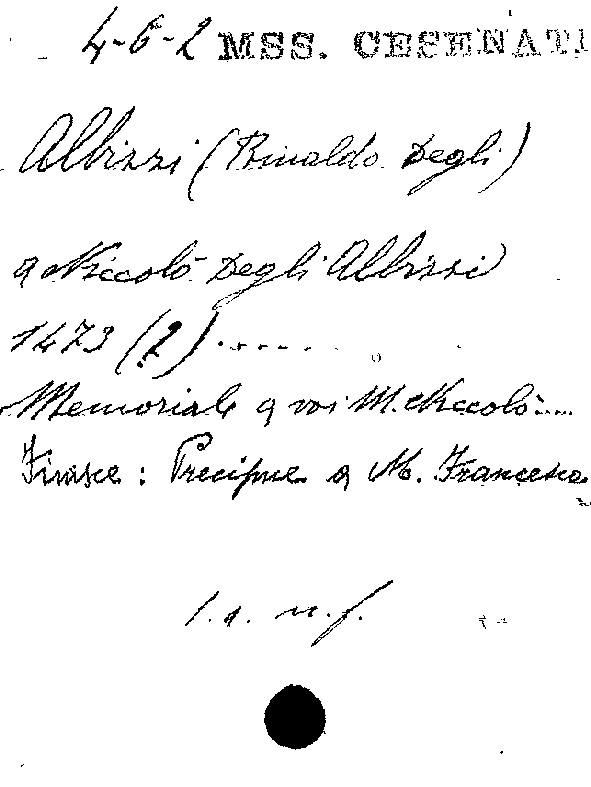 4-6-2 MSS. CESENATI
Albizzi (Rinaldo Degli)
a Niccolò Degli Albizzi
1473 (?) ........
Memoriale a voi M. Niccolò.....
Finisce: Precipue a M. Francesco
s. a. n. f.